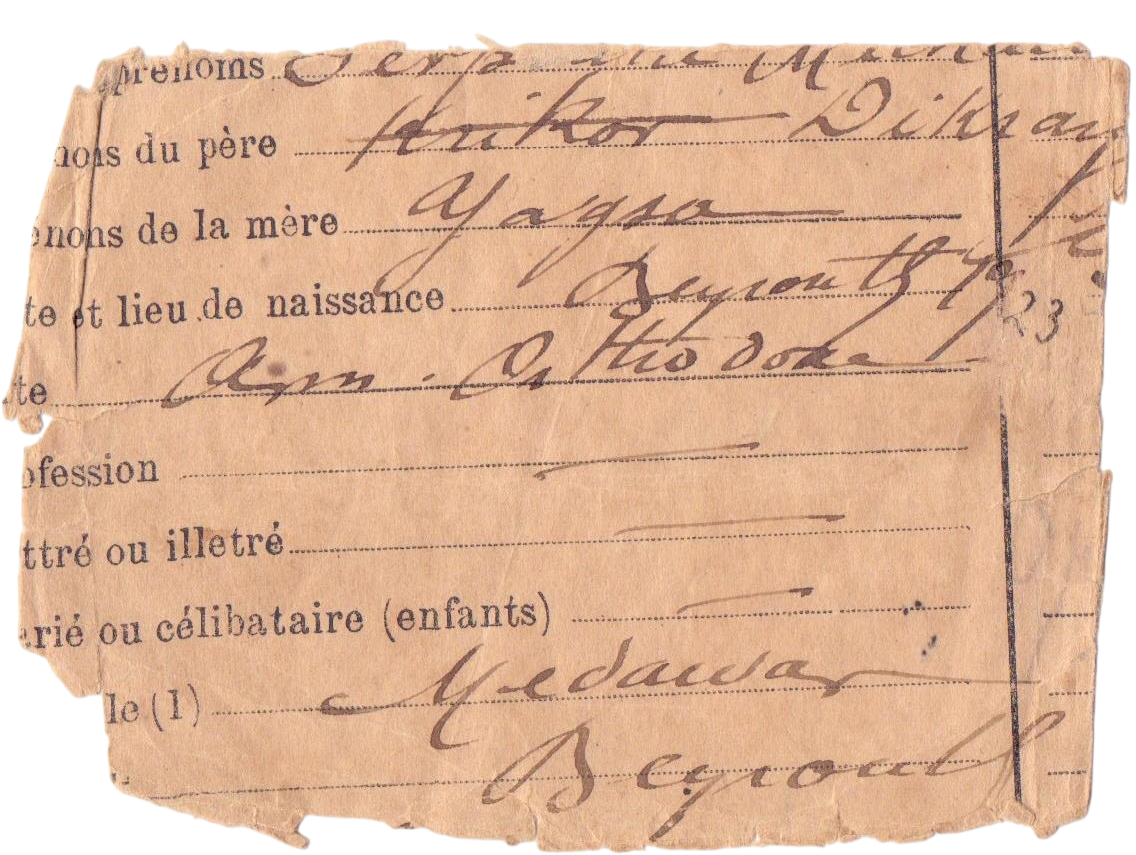 prenoms
noms du père Krikor Dikran
enoms de la mère Yagsa
te et lieu de naissance Beyrouth 1923
te Arm. Orthodoxe
ofession
ttré ou illetré
arié ou célibataire (enfants)
le (1) Medawar
Beyrouth